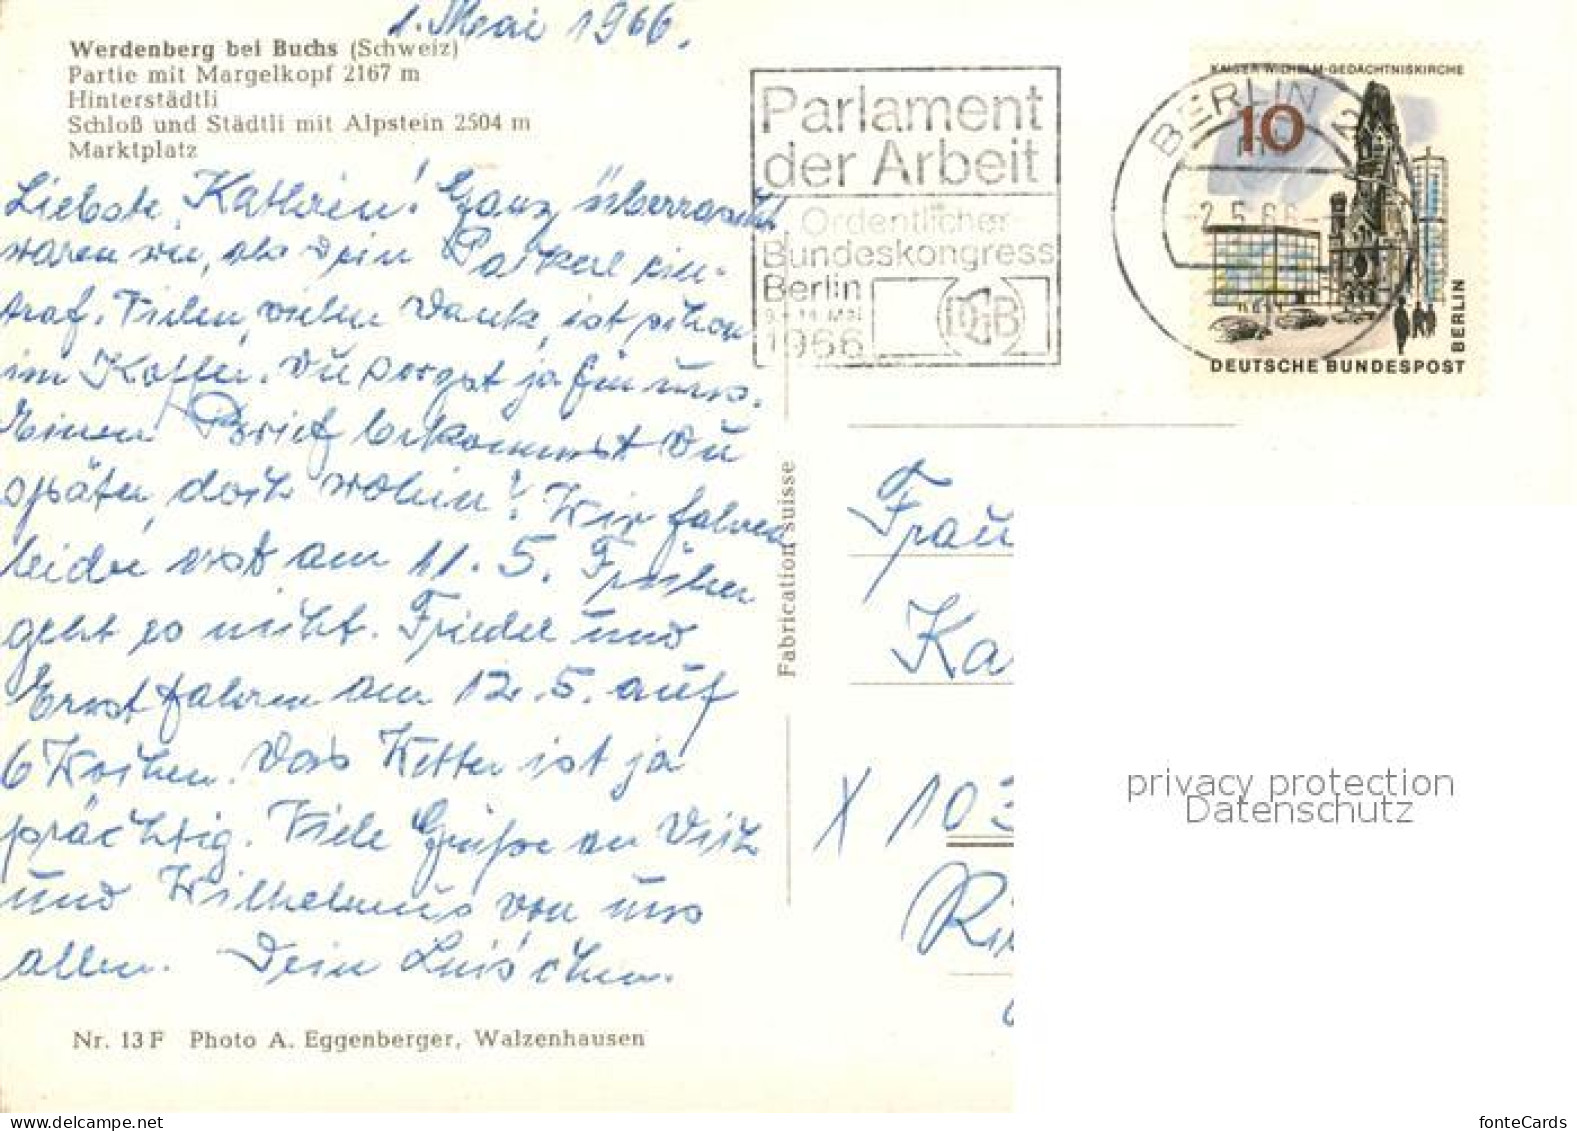 1. Mai 1966.
Werdenberg bei Buchs (Schweiz)
Partie mit Margelkopf 2167 m
Hinterstädtli
Schloß und Städtli mit Alpstein 2504 m
Marktplatz
Liebste Kathrin! Ganz überrascht
waren wir, als Dein Packerl ein-
traf. Vielen, vielen Dank, ist schon
im Koffer. Du sorgst ja für uns.
Einen Brief bekommst Du
später, doch wohin? Wir fahren
leider erst am 11. 5. Früher
geht es nicht. Friedel und
Ernst fahren am 12. 5. auf
6 Wochen. Das Wetter ist ja
prächtig. Viele Grüße an Veit
und Wilhelmus von uns
allen. Dein Luis'chen.
Nr. 13 F Photo A. Eggenberger, Walzenhausen
Fabrication suisse
Parlament
der Arbeit
Ordentlicher
Bundeskongress
Berlin
9.-14. Mai
1966
DGB
BERLIN
2.5.66
KAISER-WILHELM-GEDÄCHTNISKIRCHE
10
DEUTSCHE BUNDESPOST
BERLIN
Frau
Ka
X 103
privacy protection
Datenschutz
fonteCards